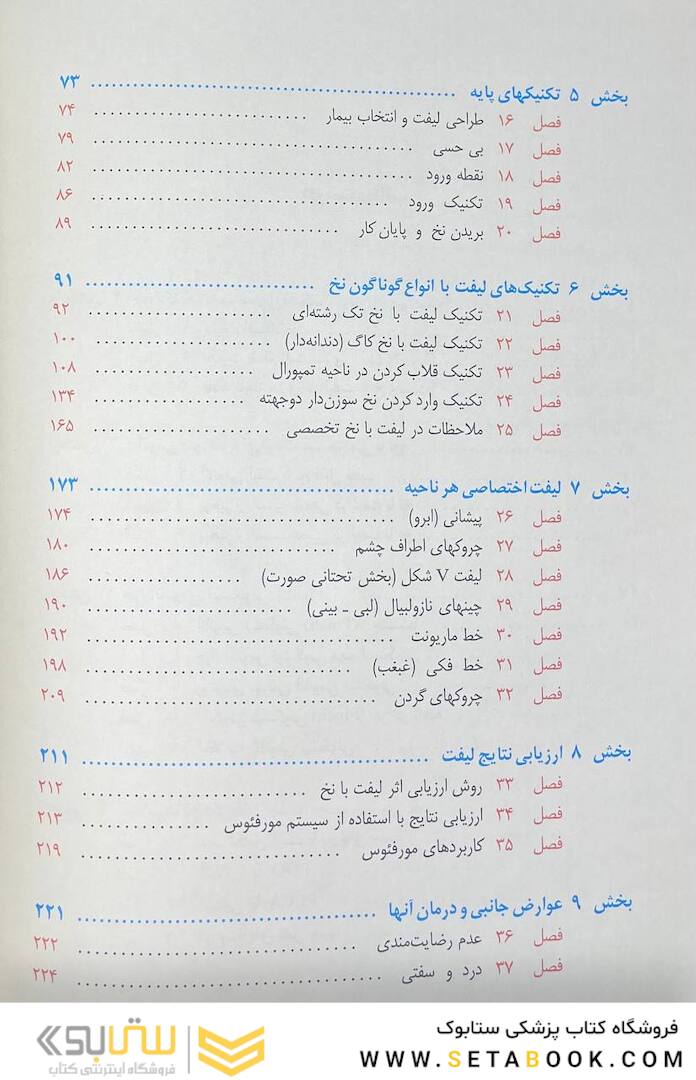 بخش ۵ تکنیکهای پایه ۷۳
فصل ۱۶ طراحی لیفت و انتخاب بیمار ۷۴
فصل ۱۷ بی حسی ۷۹
فصل ۱۸ نقطه ورود ۸۲
فصل ۱۹ تکنیک ورود ۸۶
فصل ۲۰ بریدن نخ و پایان کار ۸۹
بخش ۶ تکنیک‌های لیفت با انواع گوناگون نخ ۹۱
فصل ۲۱ تکنیک لیفت با نخ تک رشته‌ای ۹۲
فصل ۲۲ تکنیک لیفت با نخ کاگ (دندانه‌دار) ۱۰۰
فصل ۲۳ تکنیک قلاب کردن در ناحیه تمپورال ۱۰۸
فصل ۲۴ تکنیک وارد کردن نخ سوزن‌دار دوجهته ۱۳۴
فصل ۲۵ ملاحظات در لیفت با نخ تخصصی ۱۶۵
بخش ۷ لیفت اختصاصی هر ناحیه ۱۷۳
فصل ۲۶ پیشانی (ابرو) ۱۷۴
فصل ۲۷ چروکهای اطراف چشم ۱۸۰
فصل ۲۸ لیفت V شکل (بخش تحتانی صورت) ۱۸۶
فصل ۲۹ چینهای نازولبیال (لبی - بینی) ۱۹۰
فصل ۳۰ خط ماریونت ۱۹۲
فصل ۳۱ خط فکی (غبغب) ۱۹۸
فصل ۳۲ چروکهای گردن ۲۰۹
بخش ۸ ارزیابی نتایج لیفت ۲۱۱
فصل ۳۳ روش ارزیابی اثر لیفت با نخ ۲۱۲
فصل ۳۴ ارزیابی نتایج با استفاده از سیستم مورفئوس ۲۱۳
فصل ۳۵ کاربردهای مورفئوس ۲۱۹
بخش ۹ عوارض جانبی و درمان آنها ۲۲۱
فصل ۳۶ عدم رضایت‌مندی ۲۲۲
فصل ۳۷ درد و سفتی ۲۲۴
فروشگاه کتاب پزشکی ستابوک
WWW.SETABOOK.COM
ستابوک
فروشگاه اینترنتی کتاب